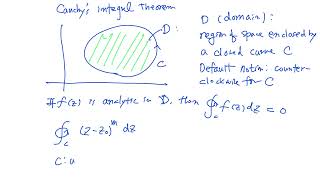 Cauchy's Integral Theorem
D:
C
D (domain):
region of space enclosed by
a closed curve C
Default notion: counter-
clockwise for C
If f(z) is analytic in D, then ∮_C f(z)dz = 0
∮_C (z-z₀)^m dz
C: u